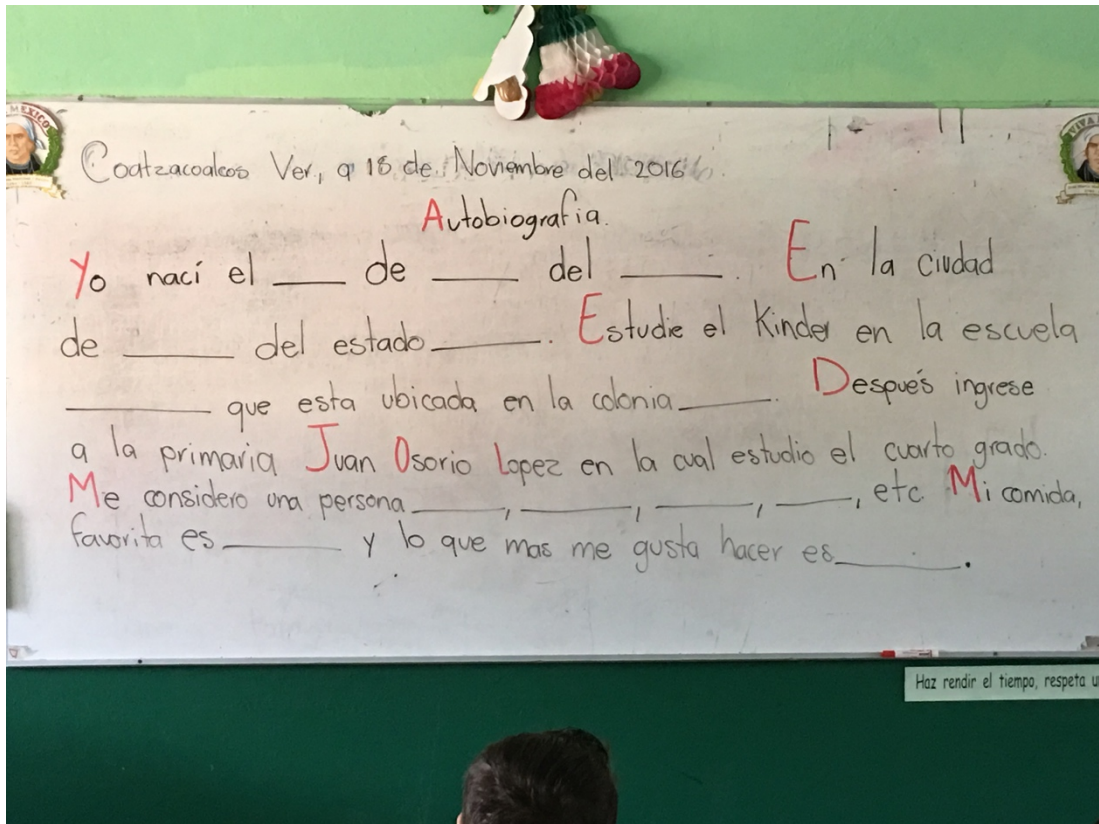 MEXICO
VIVA
Coatzacoalcos Ver, a 18 de Noviembre del 2016
Autobiografia.
Yo nací el ____ de ____ del ____. En la ciudad
de ____ del estado ____. Estudie el Kinder en la escuela
____ que esta ubicada en la colonia ____. Después ingrese
a la primaria Juan Osorio Lopez en la cual estudio el cuarto grado.
Me considero una persona ____, ____, ____, ____, etc Mi comida,
favorita es ____ y lo que mas me gusta hacer es ____.
Haz rendir el tiempo, respeta